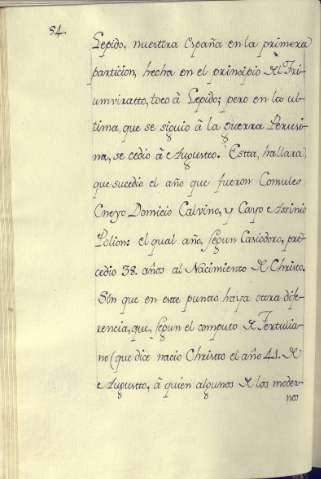 54.
Lepido, nuestra España en la primera
particion, hecha en el principio del Tri-
umviratto, toco à Lepido; pero en la ul-
tima, que se siguio à la guerra Perusi-
na, se cedio à Augusto. Esta, hallarà,
que sucedio el año que fueron Consules
Cneyo Domicio Calvino, y Cayo Assinio
Polion: el qual año, segun Casiodoro, pre-
cedio 38. años al Nacimiento de Christo.
Sin que en este punto haya otra dife-
rencia, que, segun el computo de Tertulia-
no (que dice nacio Christo el año 41. de
Augusto, à quien algunos de los moder-
nos